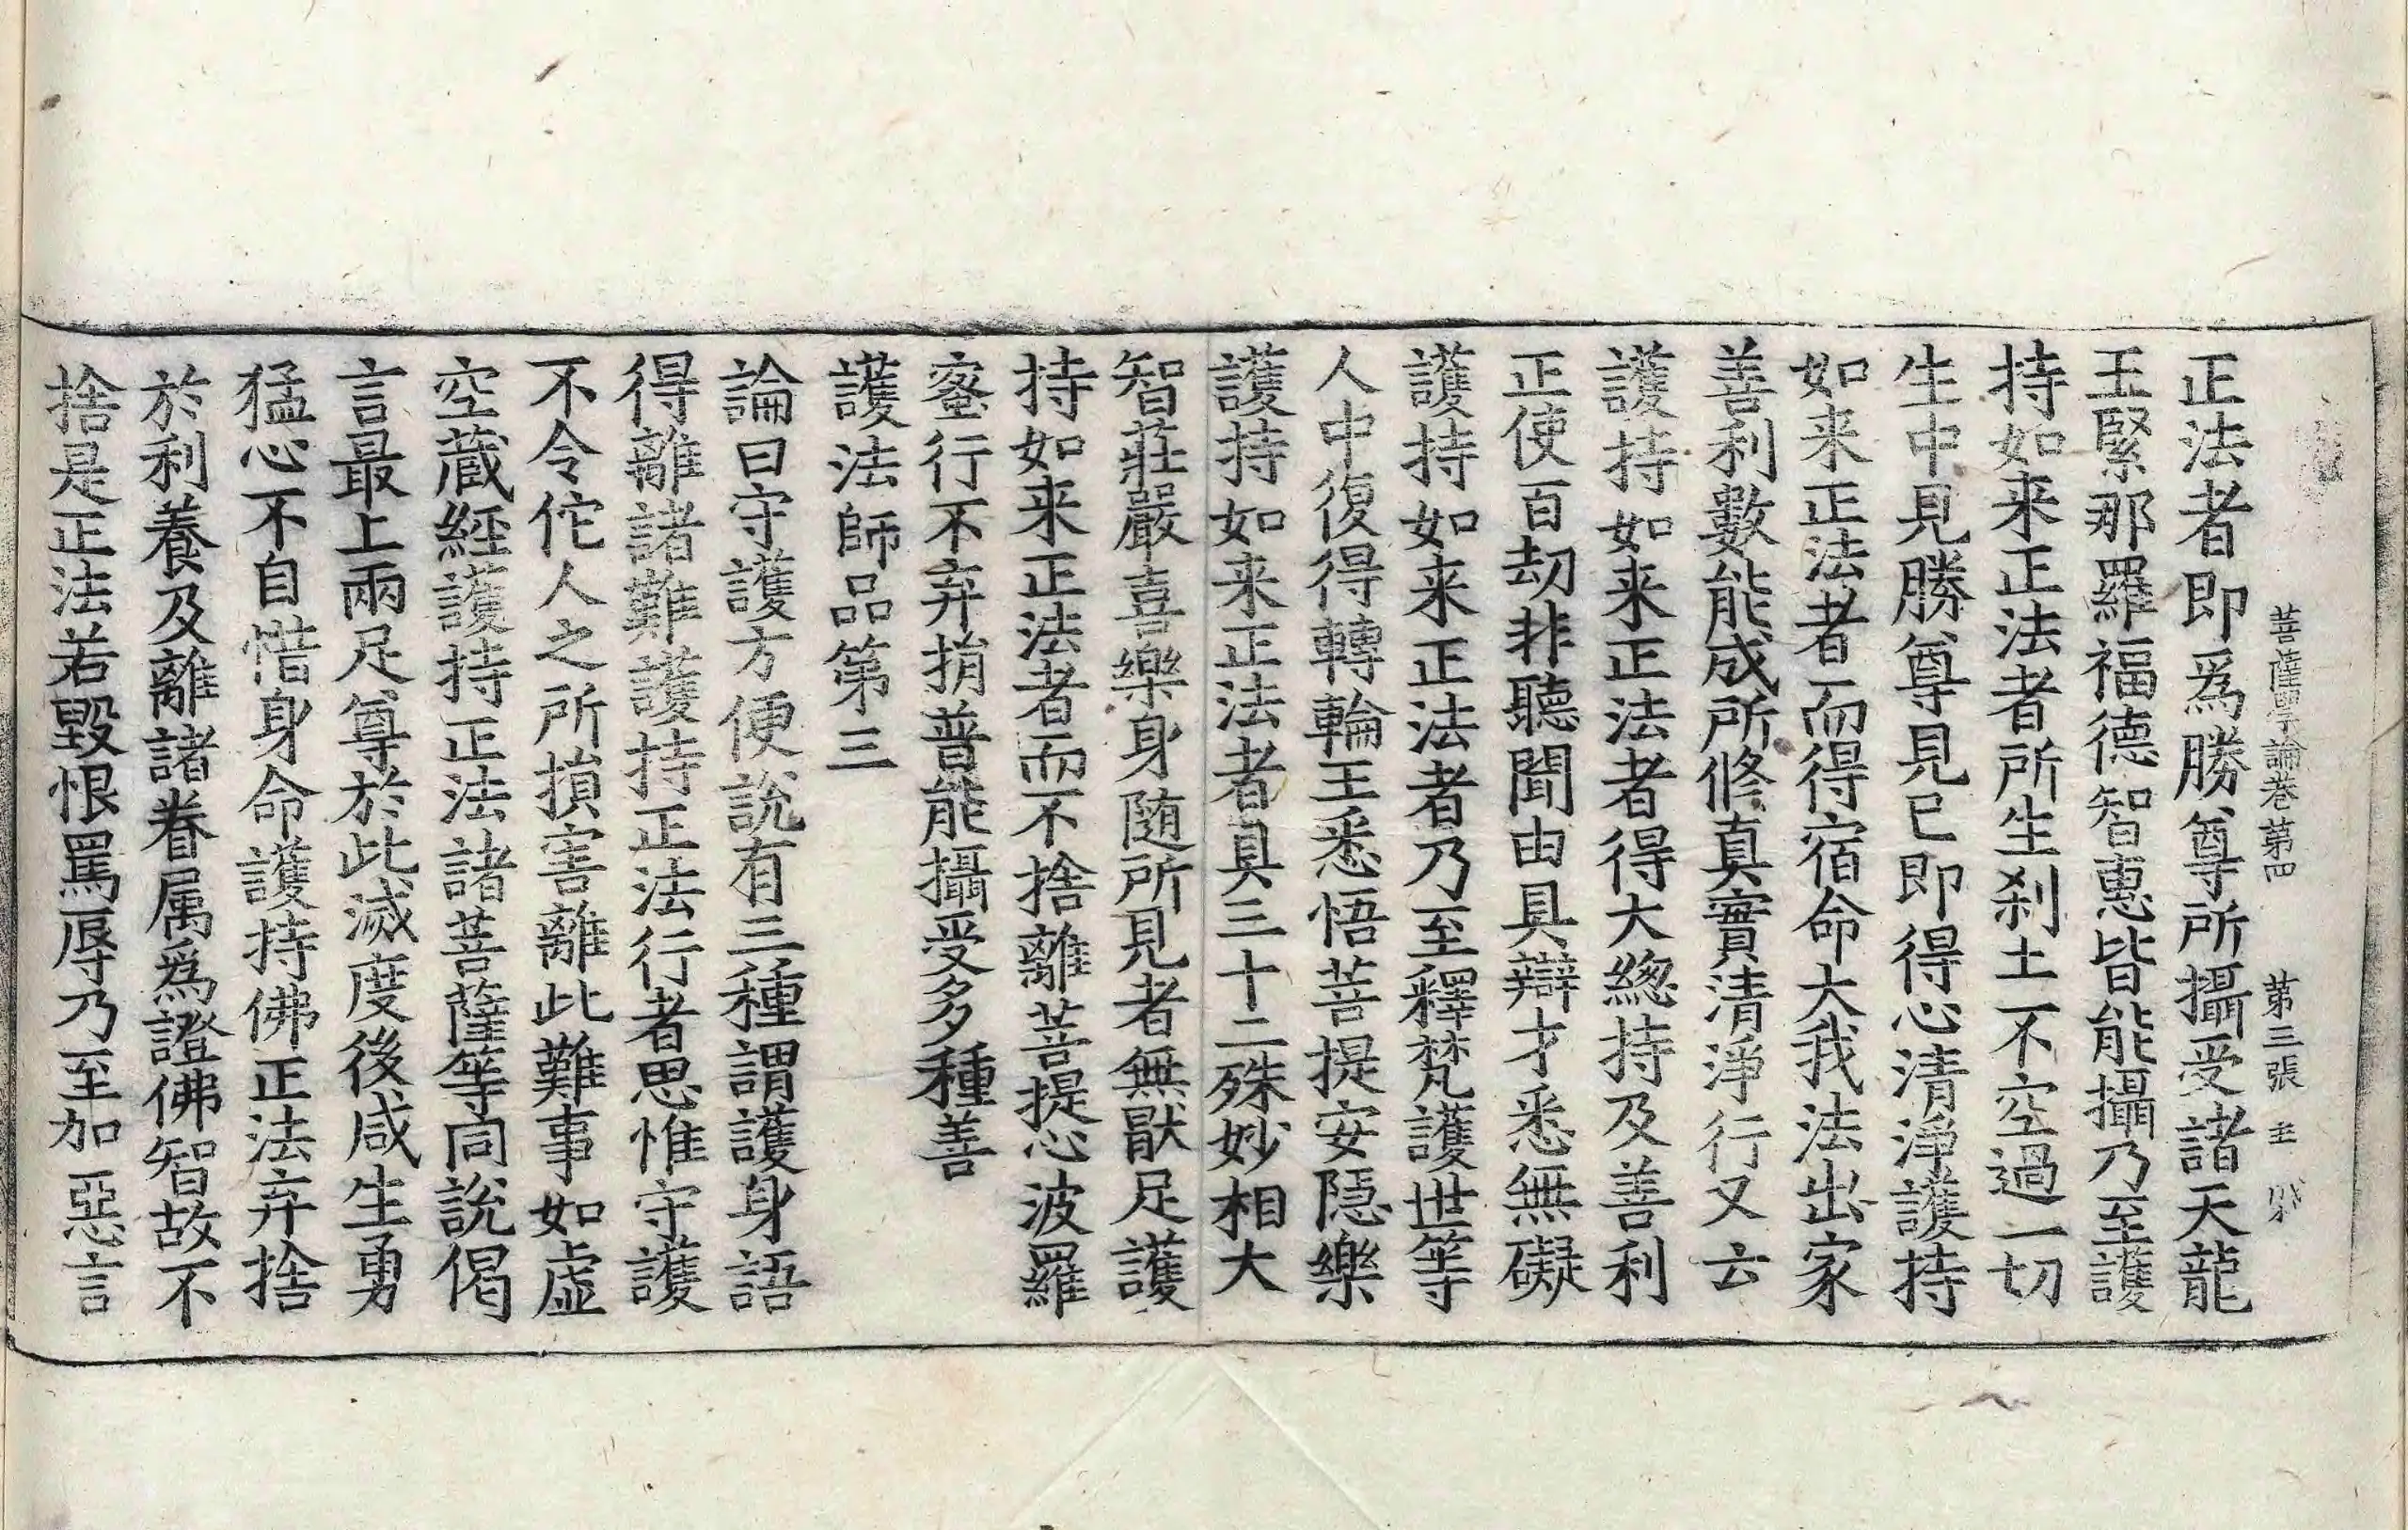 菩薩學論卷第四 第三張 主
正法者即爲勝尊所攝受諸天龍
王緊那羅福德智惠皆能攝乃至護
持如来正法者所生刹土不空過一切
生中見勝尊見已即得心清淨護持
如来正法者而得宿命大我法出家
善利數能成所修真實清淨行又云
護持如来正法者得大緫持及善利
正使百劫非聽聞由具辯才悉無礙
護持如来正法者乃至釋梵護世等
人中復得轉輪王悉悟菩提安隱樂
護持如来正法者具三十二殊妙相大
智莊嚴喜樂身随所見者無猒足護
持如来正法者而不捨離菩提心波羅
蜜行不弃捎普能攝受多種善
護法師品第三
論曰守護方便說有三種謂護身語
得離諸難護持正法行者思惟守護
不令佗人之所損害離此難事如虛
空蔵經護持正法諸菩薩等同說偈
言最上兩足尊於此滅度後咸生勇
猛心不自惜身命護持佛正法弃捨
於利養及離諸眷属爲證佛智故不
捨是正法若毀恨罵辱乃至加惡言